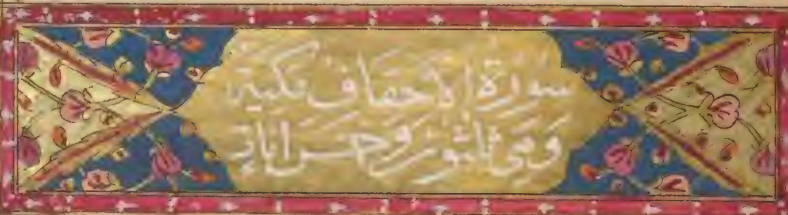 سورة الأحقاف مكية
وهي ثلثون وخمس اٰيات